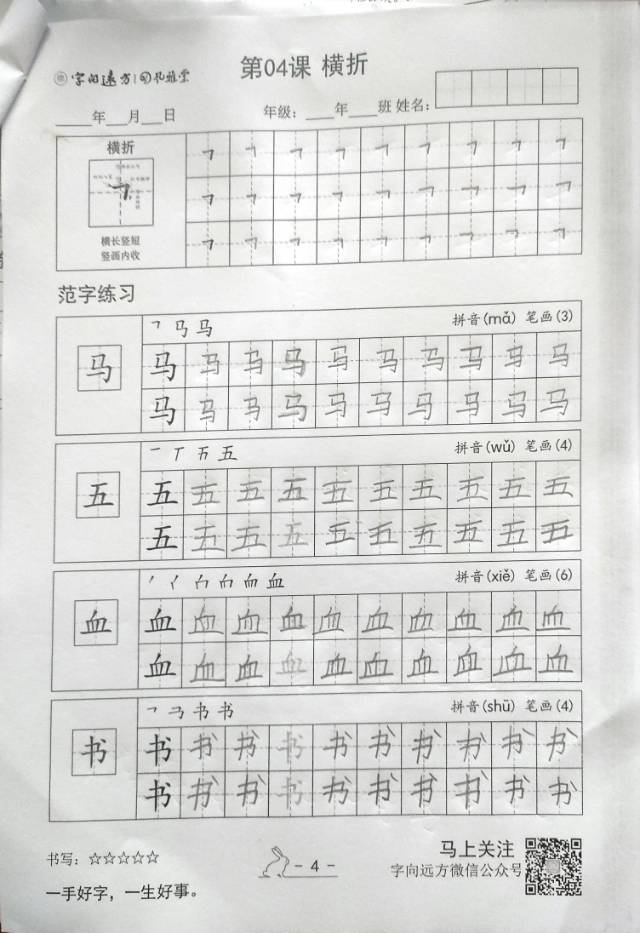 字向远方
第04课 横折
年 月 日
年级: 年 班 姓名:
横折
横长竖短
竖画内收
范字练习
拼音(mǎ) 笔画(3)
马
马 马 马 马 马 马 马 马 马 马
马 马 马 马 马 马 马 马 马 马
拼音(wǔ) 笔画(4)
五
五 五 五 五 五 五 五 五 五 五
五 五 五 五 五 五 五 五 五 五
拼音(xiě) 笔画(6)
血
血 血 血 血 血 血 血 血 血 血
血 血 血 血 血 血 血 血 血 血
拼音(shū) 笔画(4)
书
书 书 书 书 书 书 书 书 书 书
书 书 书 书 书 书 书 书 书 书
书写: ☆☆☆☆☆
一手好字，一生好事。
- 4 -
马上关注
字向远方微信公众号